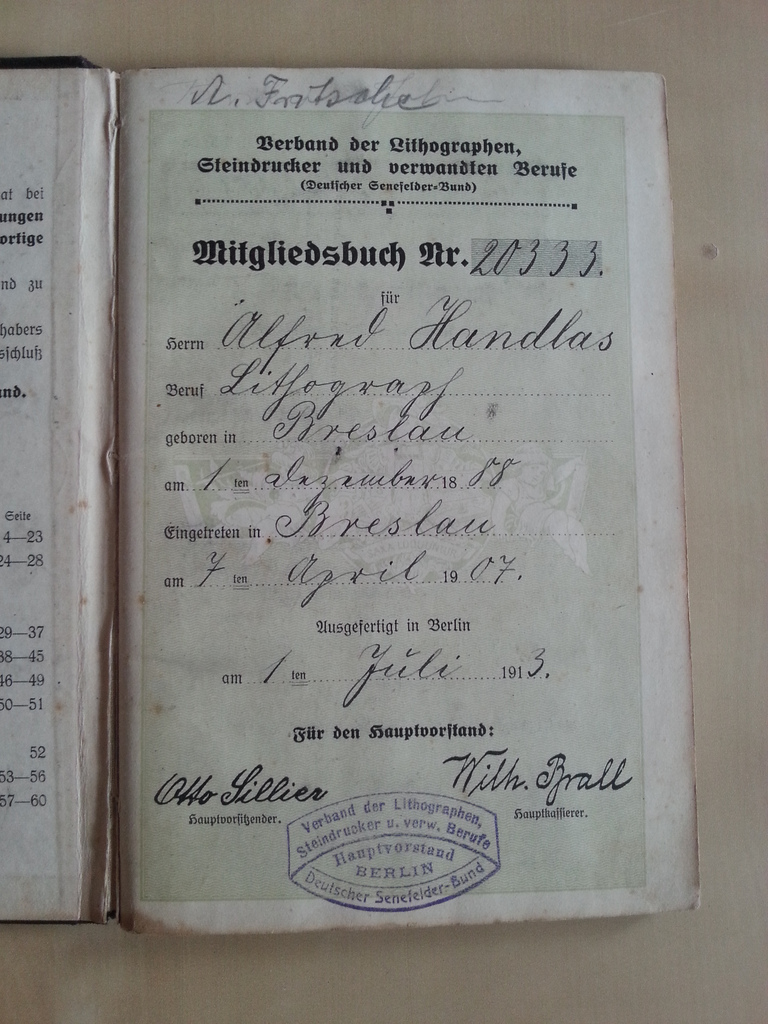 at bei
ungen
ortige
nd zu
habers
sschluß
nd.
Seite
4—23
24—28
29—37
38—45
46—49
50—51
52
53—56
57—60
A. Fritsche
Verband der Lithographen,
Steindrucker und verwandten Berufe
(Deutscher Senefelder-Bund)
Mitgliedsbuch Nr. 20333.
für
Herrn Alfred Handlas
Beruf Lithograph
geboren in Breslau
am 1ten Dezember 1888
Eingetreten in Breslau
am 7ten April 1907.
Ausgefertigt in Berlin
am 1ten Juli 1913.
Für den Hauptvorstand:
Otto Sillier Wilh. Brall
Hauptvorsitzender. Hauptkassierer.
Verband der Lithographen,
Steindrucker u. verw. Berufe
Hauptvorstand
BERLIN
Deutscher Senefelder-Bund